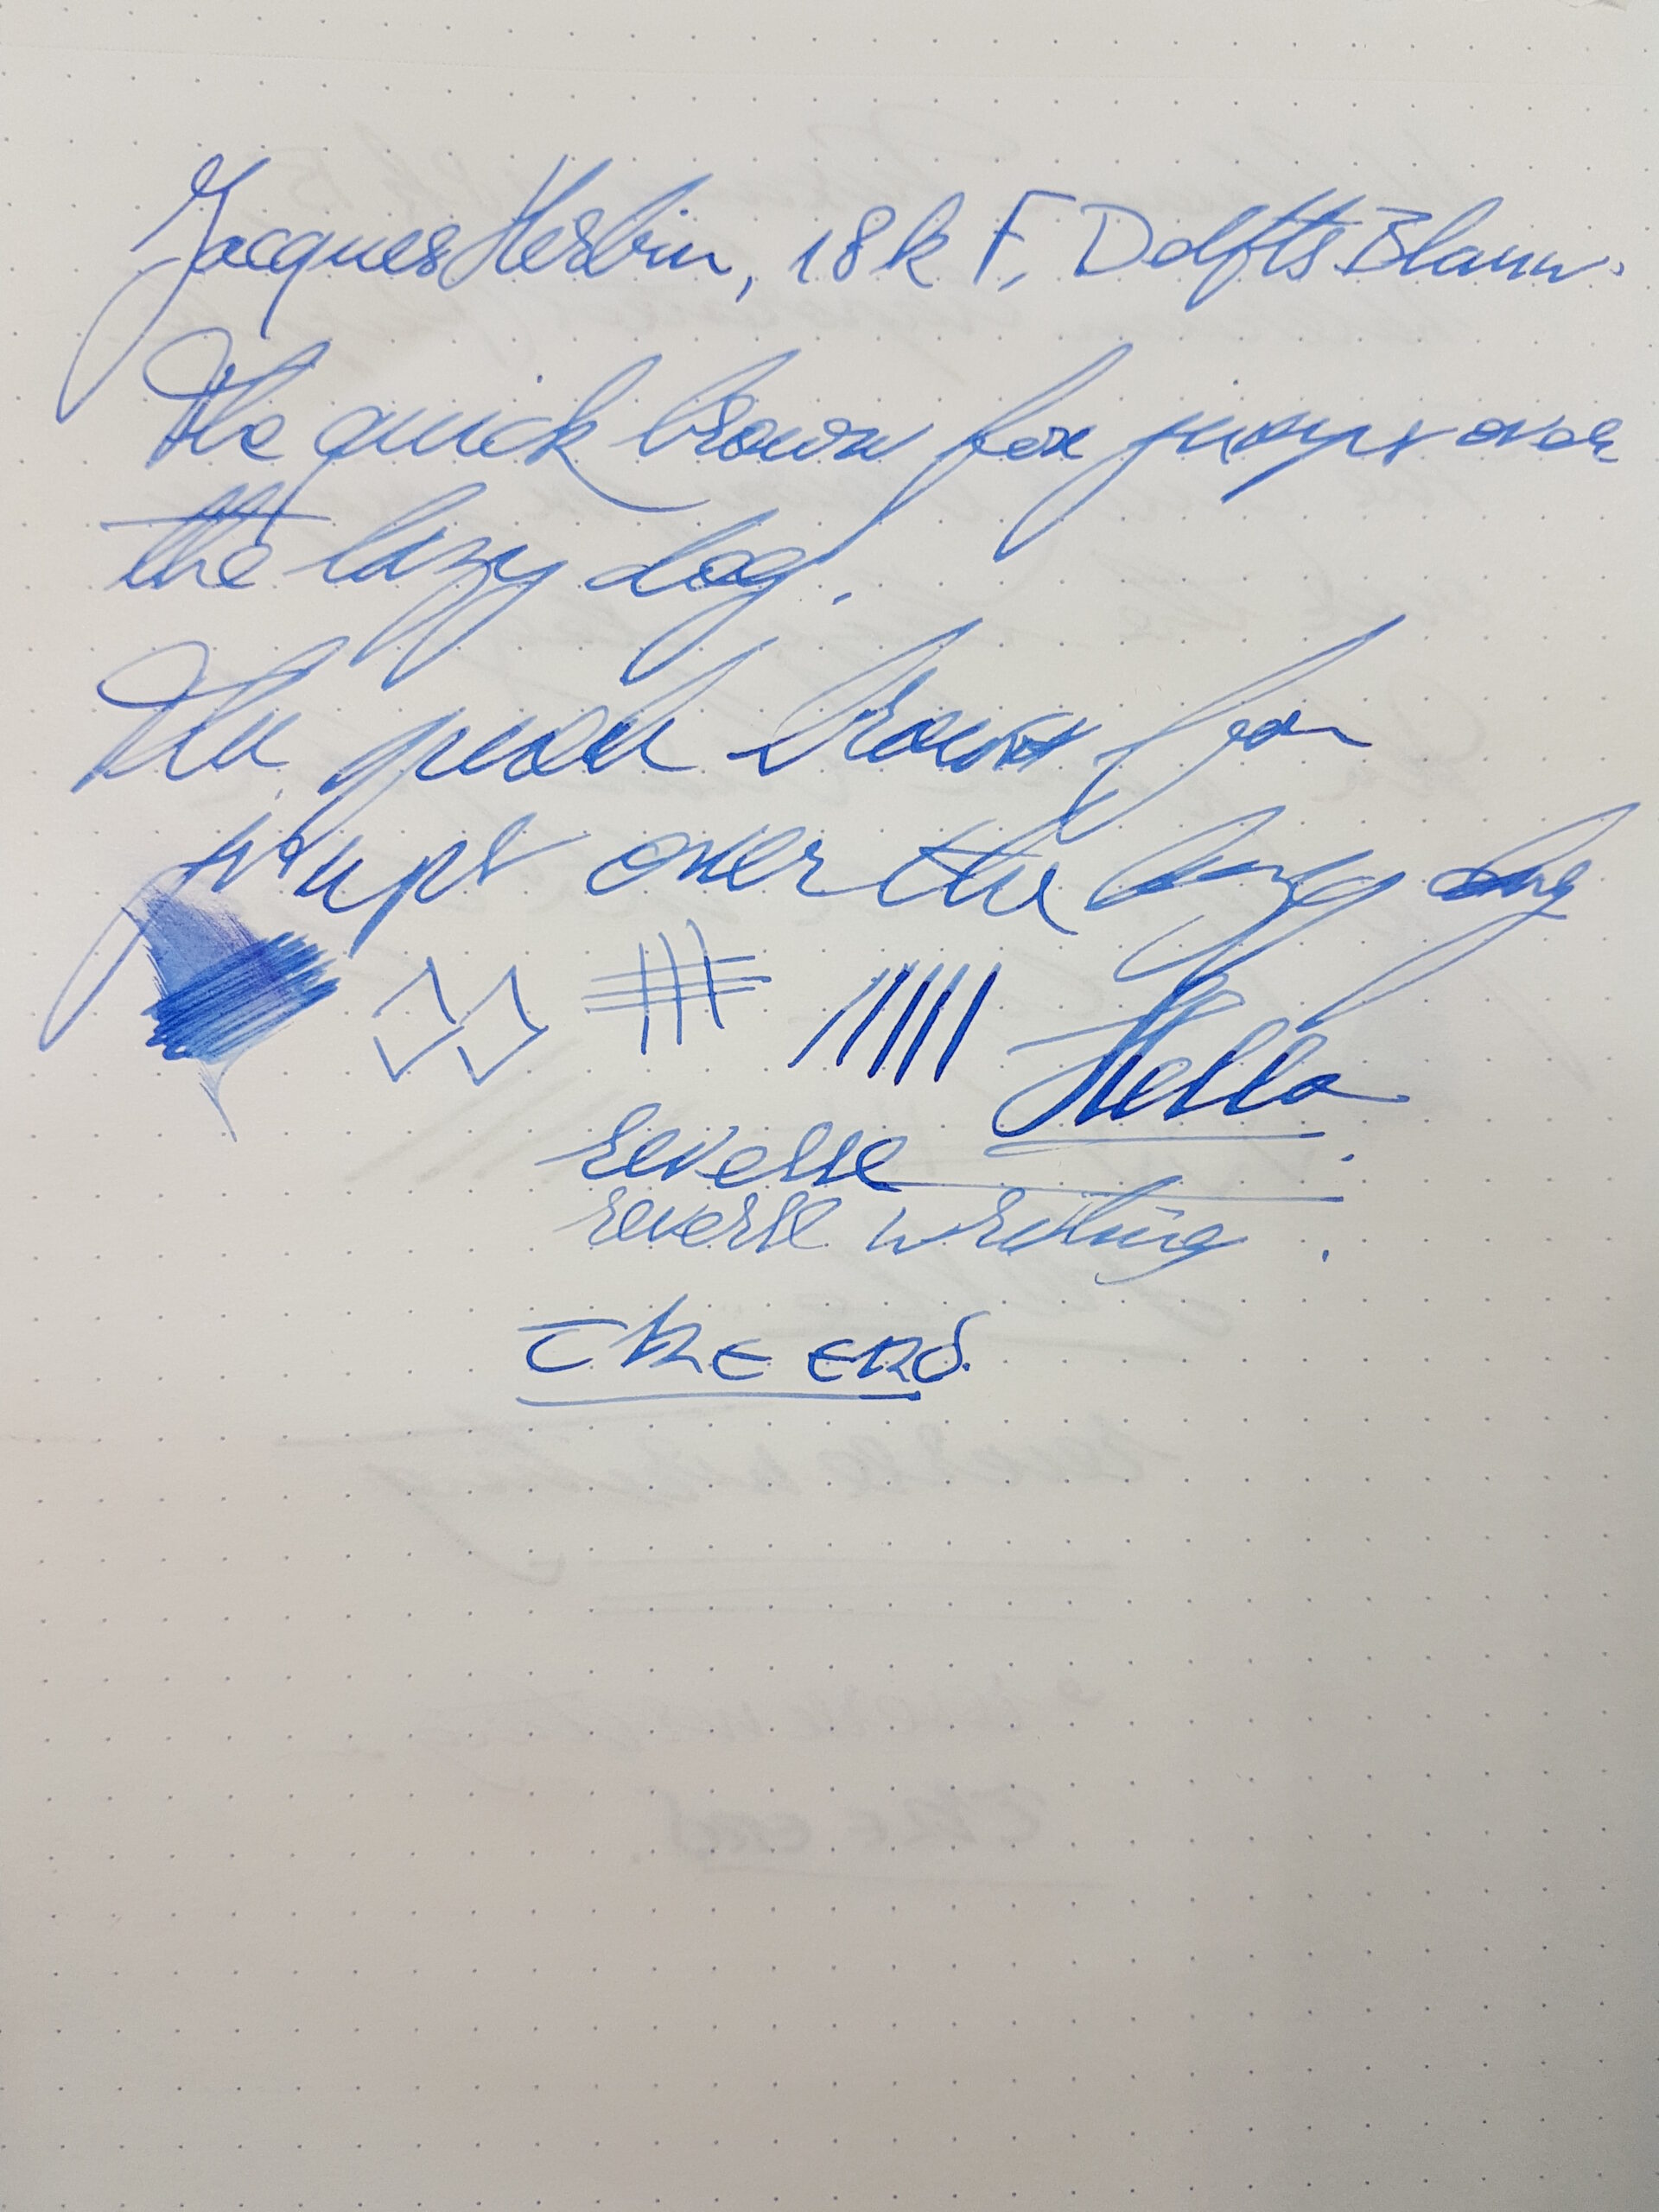 Jacques Herbin, 18k F, Delfts Blauw.
The quick brown fox jumps over
the lazy dog.
The quick brown fox
jumps over the lazy dog
Hello
reverse
reverse writing.
The end.